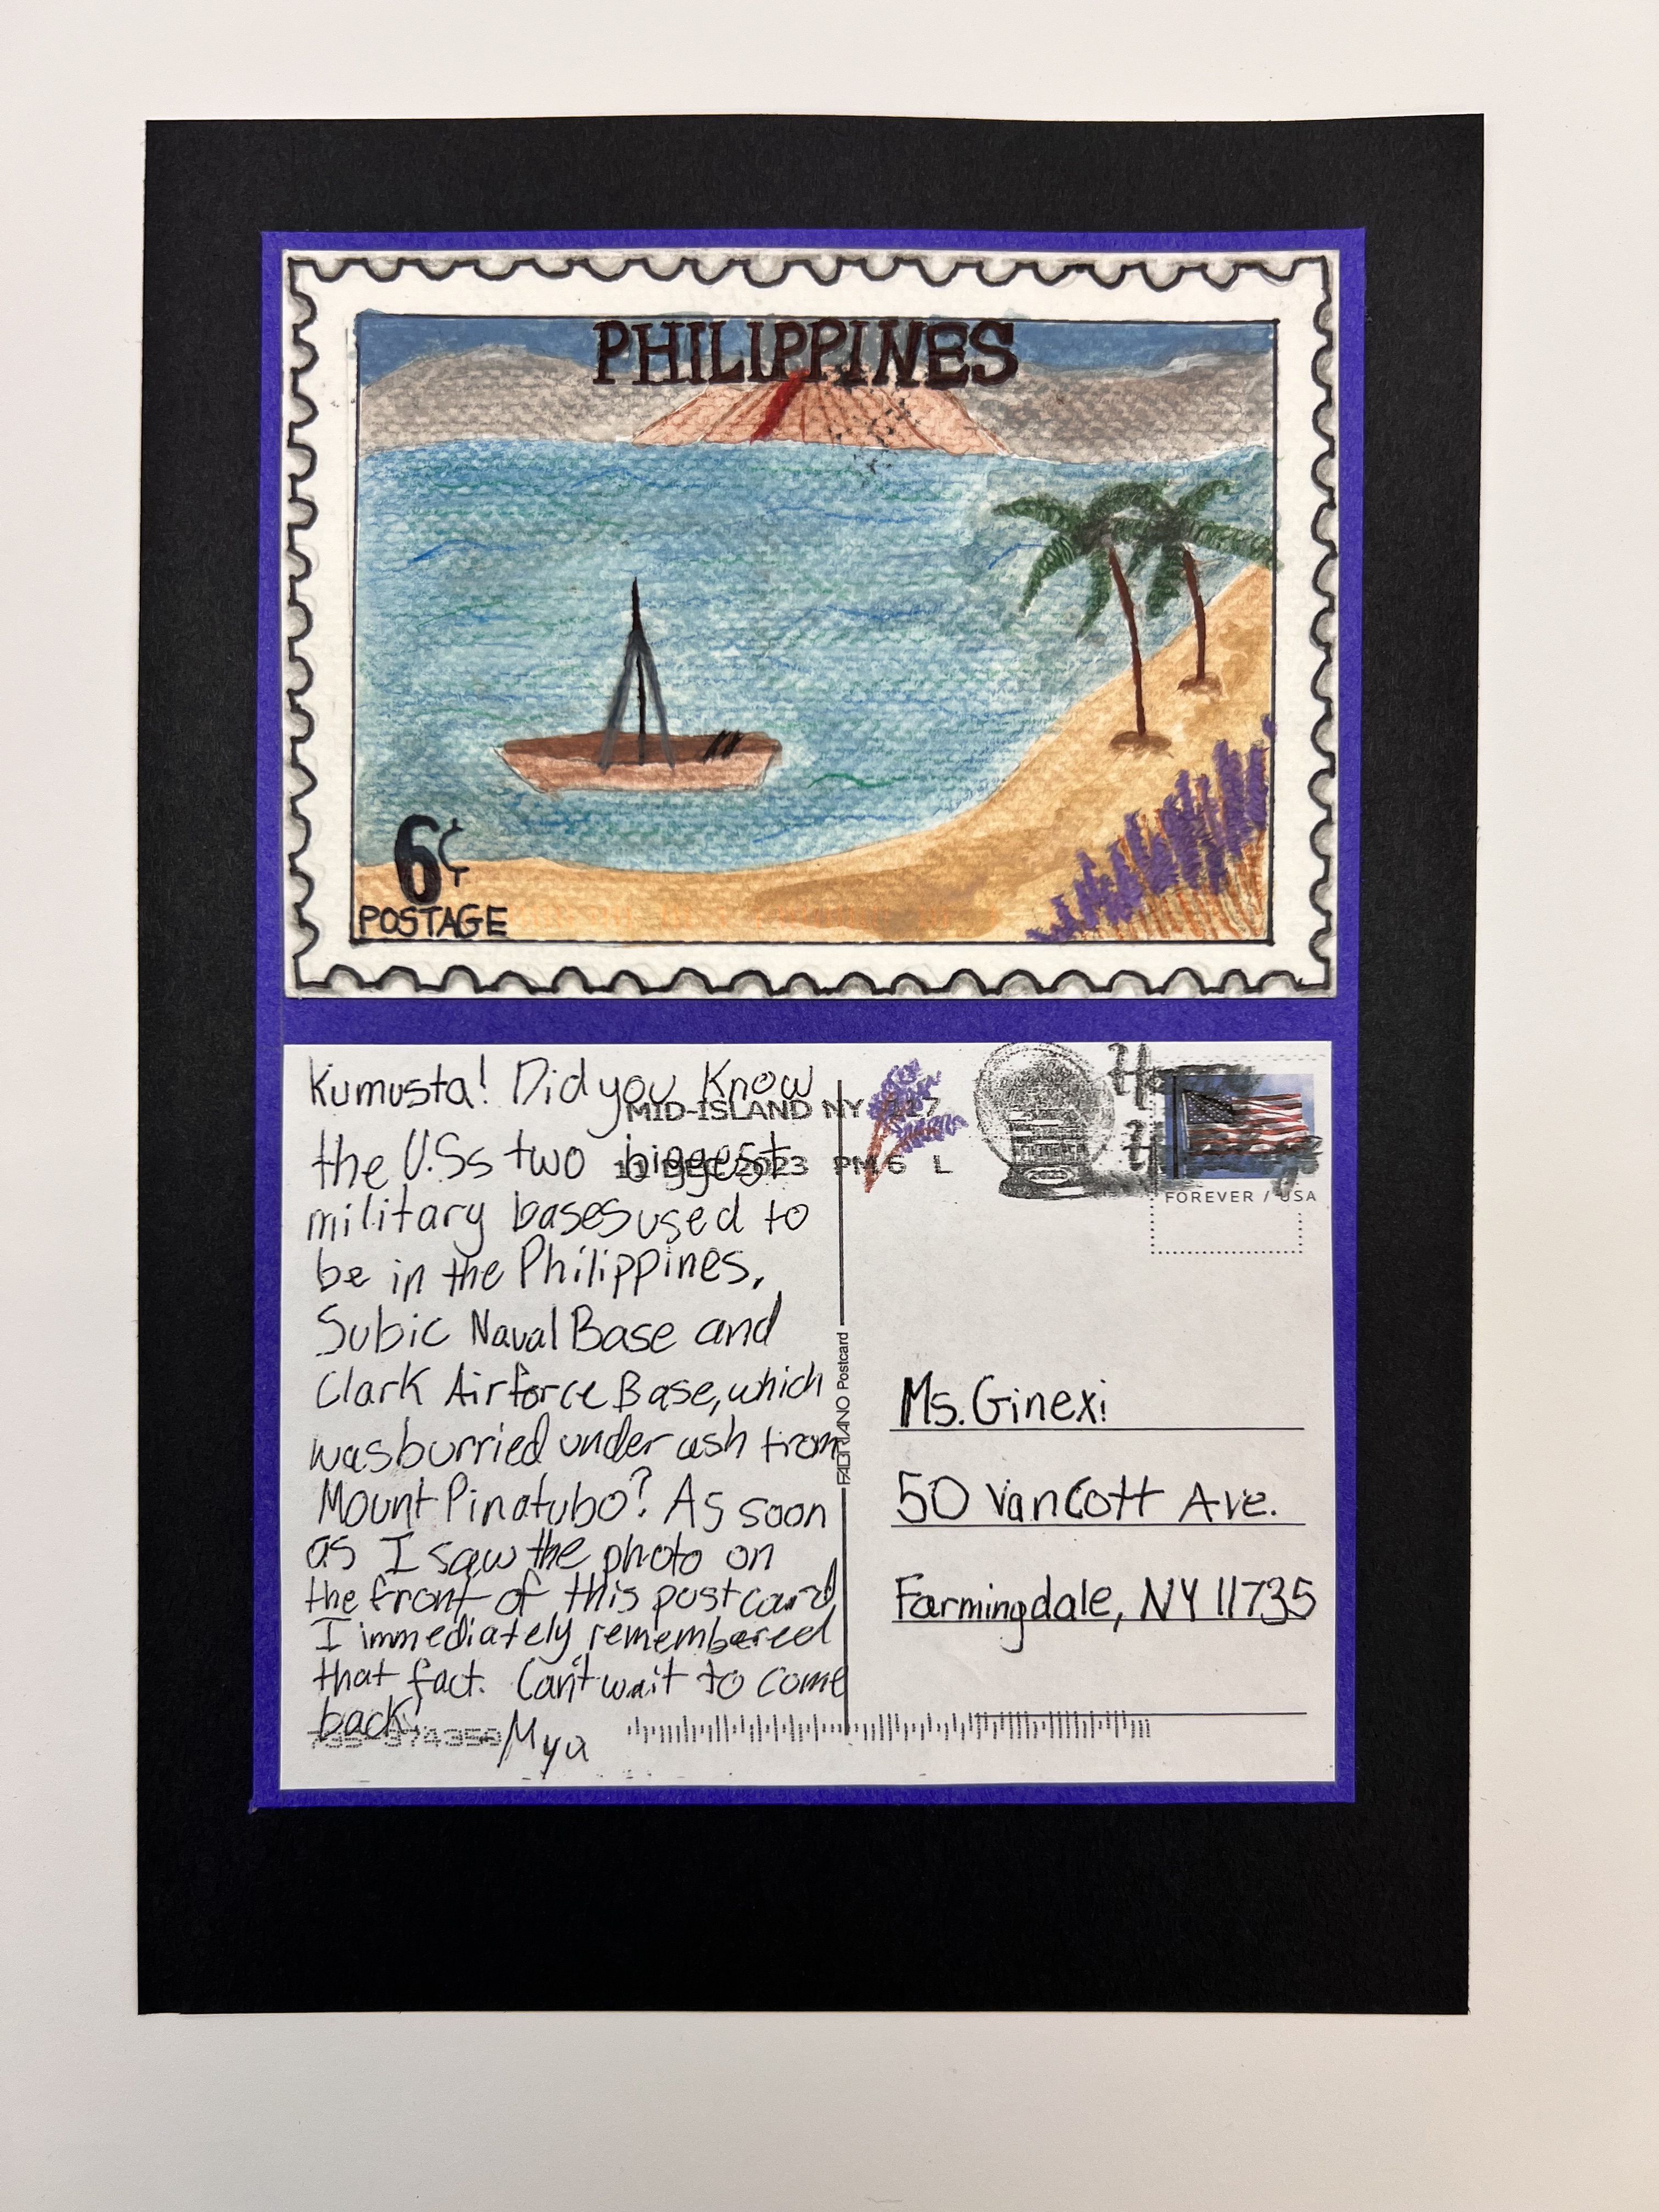 PHILIPPINES
6¢
POSTAGE
Kumusta! Did you know
the U.Ss two biggest
military bases used to
be in the Philippines,
Subic Naval Base and
Clark Airforce Base, which
was burried under ash from
Mount Pinatubo? As soon
as I saw the photo on
the front of this postcard
I immediately remembered
that fact. Can't wait to come
back!
-Mya
MID-ISLAND NY 117
11 DEC 2023 PM 6 L
FOREVER / USA
FABRIANO Postcard
Ms. Ginexi
50 Van Cott Ave.
Farmingdale, NY 11735